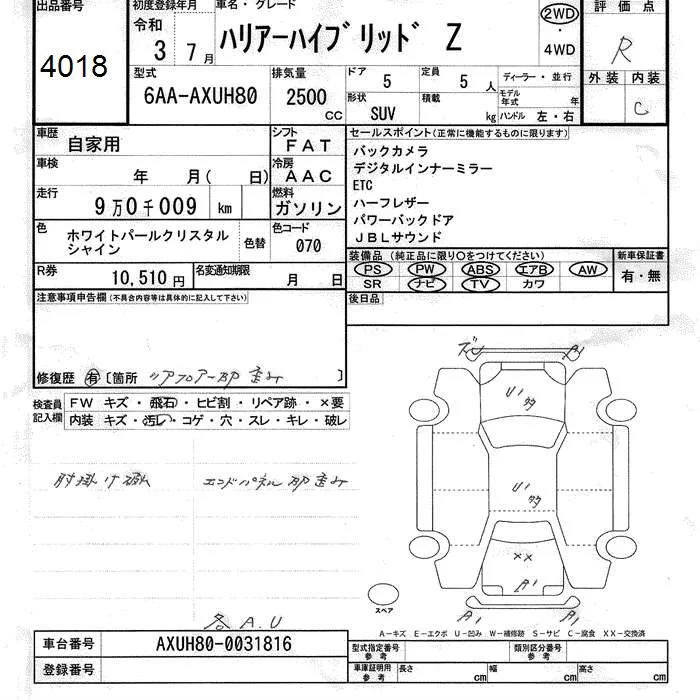 出品番号
4018
初度登録年月
令和
3 年 7 月
車名・グレード
ハリアーハイブリッド Z
2WD
・
4WD
評 価 点
R
外 装 内 装
C
型式
6AA-AXUH80
排気量
2500
CC
ドア
5
定員
5 人
ディーラー・並行
形状
SUV
積載
kg
モデル
年式 年
ハンドル 左・右
車歴
自家用
シフト
FAT
車検
年 月( 日)
冷房
AAC
走行
9万0千009 km
燃料
ガソリン
色
ホワイトパールクリスタル
シャイン
色替
色コード
070
R券
10,510 円
名変通知期限
月 日
セールスポイント(正常に機能するものに限ります)
バックカメラ
デジタルインナーミラー
ETC
ハーフレザー
パワーバックドア
JBLサウンド
装備品 (純正品に限り○をつけてください)
PS PW ABS エアB AW
SR ナビ TV カワ
新車保証書
有・無
後日品
注意事項申告欄(不具合内容等は具体的に記入して下さい)
修復歴 有 〔箇所 リアフロアー部 歪み 〕
検査員
記入欄
FW キズ・飛石・ヒビ割・リペア跡・×要
内装 キズ・汚い・コゲ・穴・スレ・キレ・破レ
肘掛け破れ
エンドパネル部歪み
各A.U
ズレ A1
U1
多
U1
多
××
A1
A1 A1
スペア
A-キズ E-エクボ U-凹み W-補修跡 S-サビ C-腐食 XX-交換済
車台番号
AXUH80-0031816
登録番号
型式指定番号
参 考
類別区分番号
参 考
車庫証明用
参 考
長さ cm
幅 cm
高さ cm